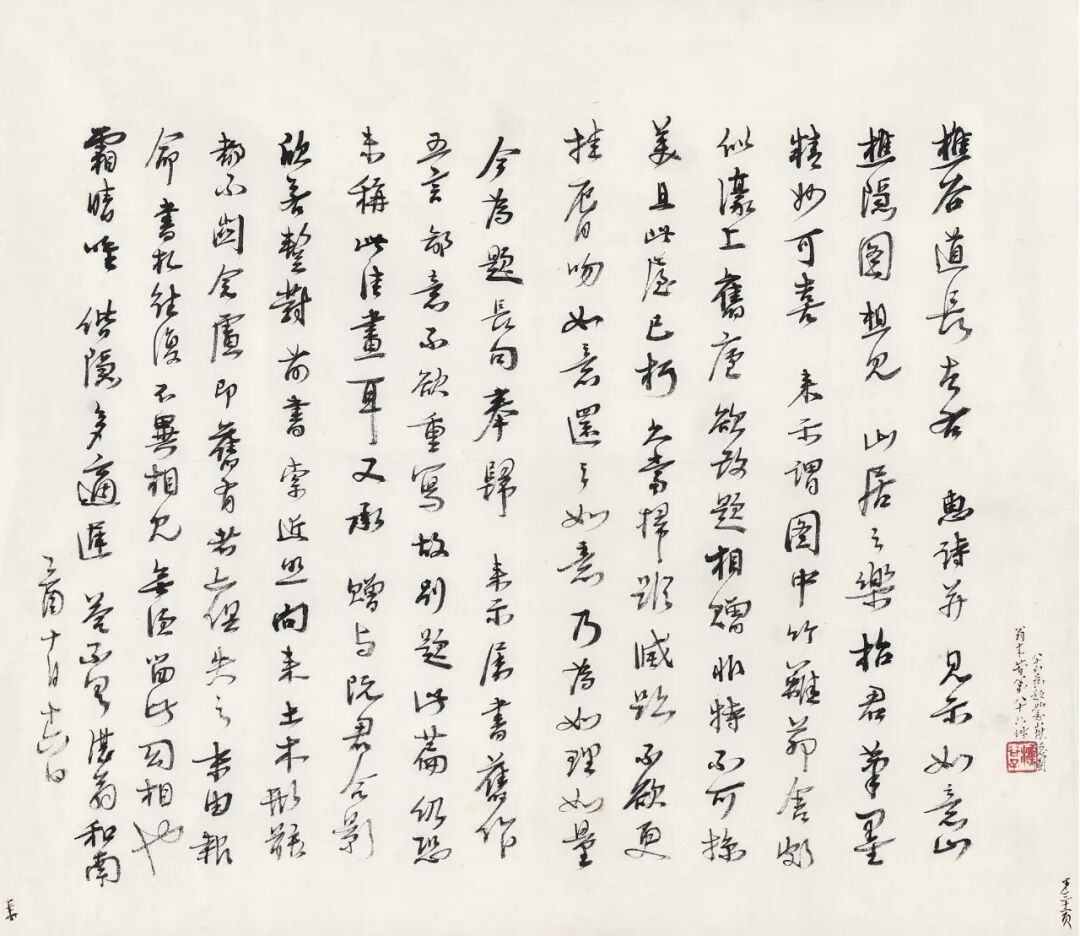 樵谷道長左右 惠詩并見示如意山
樵隱圖想見 山居之樂枯君筆墨
精妙可喜 来示謂圖中竹籬茆舍頗
似濠上舊廬欲改題相贈非特不可掠
美且此廬已朽久當掃跡滅跡不欲更
挂唇吻如意還之如意乃為如理如量
今為題長句奉歸 来示屬書舊作
五言鄙意不欲重寫故別題此篇仍恐
未稱此佳畫耳又承 贈与阮君合影
欣若整對前書索近照向来土木形骸
都不留念慮即舊有者亦俱失之末由報
命書札往復不異相見無須留此幻相也
霜晴唯 偕隱多適遲 答不具湛翁和南
十月十六日